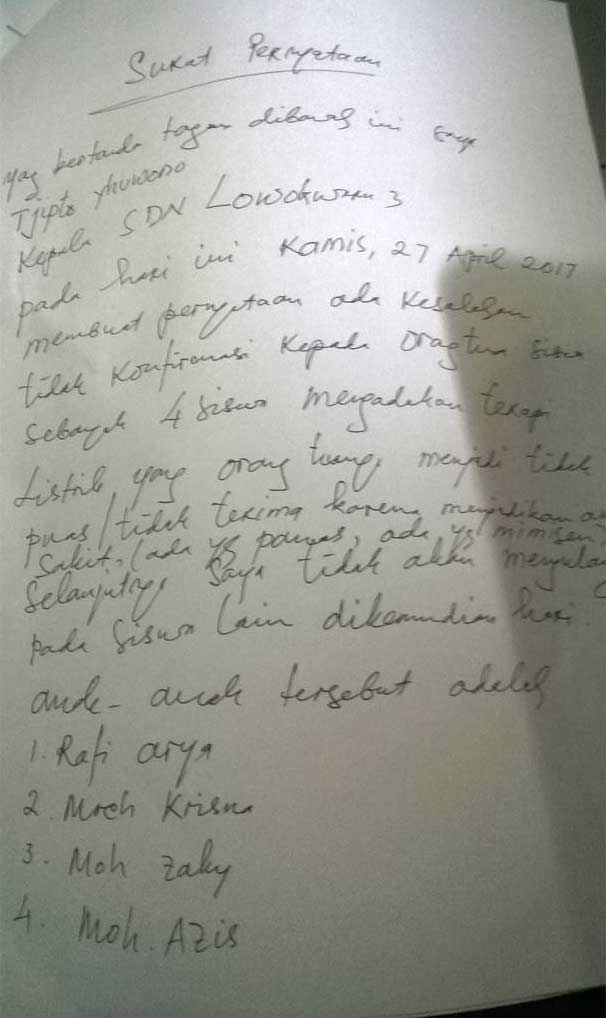 Surat Pernyataan
yang bertanda tangan dibawah ini saya
Tjipto yhuwono
Kepala SDN Lowokwaru 3
pada hari ini Kamis, 27 April 2017
membuat pernyataan ada kesalahan
tidak konfirmasi kepada orangtua siswa
sebanyak 4 siswa mengadakan terapi
listrik, yang orang tuanya menjadi tidak
puas / tidak terima karena menjadikan
sakit, (ada yg panas, ada yg mimisen
selanjutnya saya tidak akan mengulang
pada siswa lain dikemudian hari.
anak-anak tersebut adalah
1. Rafi arya
2. Moch Krisna
3. Moh zaky
4. Moh. Azis